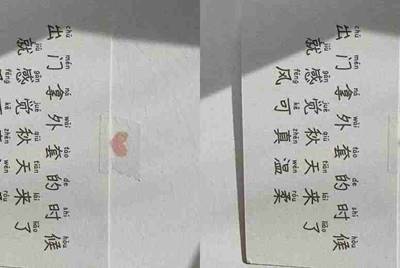 chū mén ná wài tào de shí hòu
出门拿外套的时候
jiù gǎn jué qiū tiān lái liǎo
就感觉秋天来了
fēng kě zhēn wēn róu
chū mén ná wài tào de shí hòu
出门拿外套的时候
jiù gǎn jué qiū tiān lái liǎo
就感觉秋天来了
fēng kě zhēn wēn róu
风可真温柔